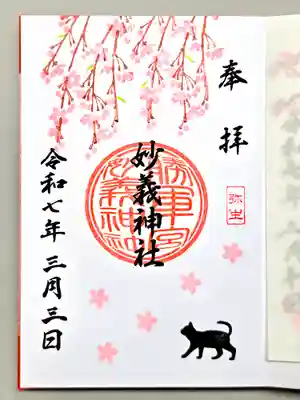 奉拝
弥生
妙義神社
令和七年三月三日